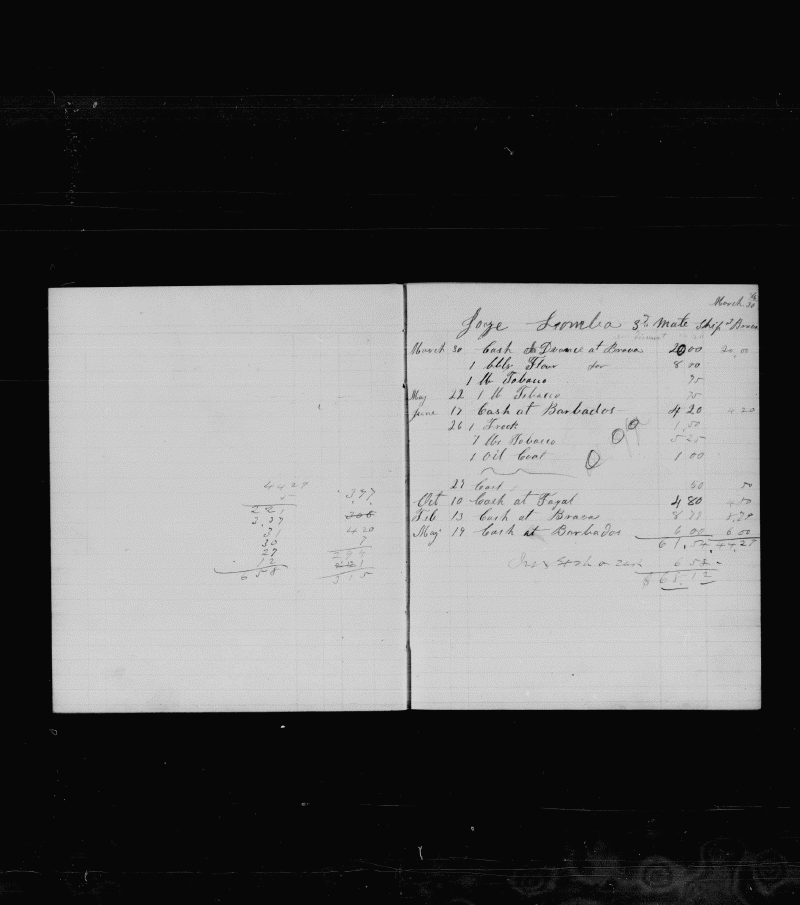 4429
5
221
3,37 3,97
31 306
30 420
27 7
12 294
221
6 58 315
March 30
Joze Lomba 3rd Mate Ship at Brava
March 30 Cash Advance at Brava 20 00 20,00
1 bblr Flour 8 00
1 lb Tobacco 75
May 22 1 lb Tobacco 75
June 17 Cash at Barbados 4 20 4 20
26 1 Frock 1,50
7 lbs Tobacco 5 25
1 Oil Coat 1 00
27 Cash 50 50
Oct 10 Cash at Fayal 4 80 4 80
Feb 13 Cash at Brava 8 79 8,79
May 19 Cash at Barbados 6 00 6 00
61,54 44,29
Ins & Int on Cash 6 58
$ 68,12